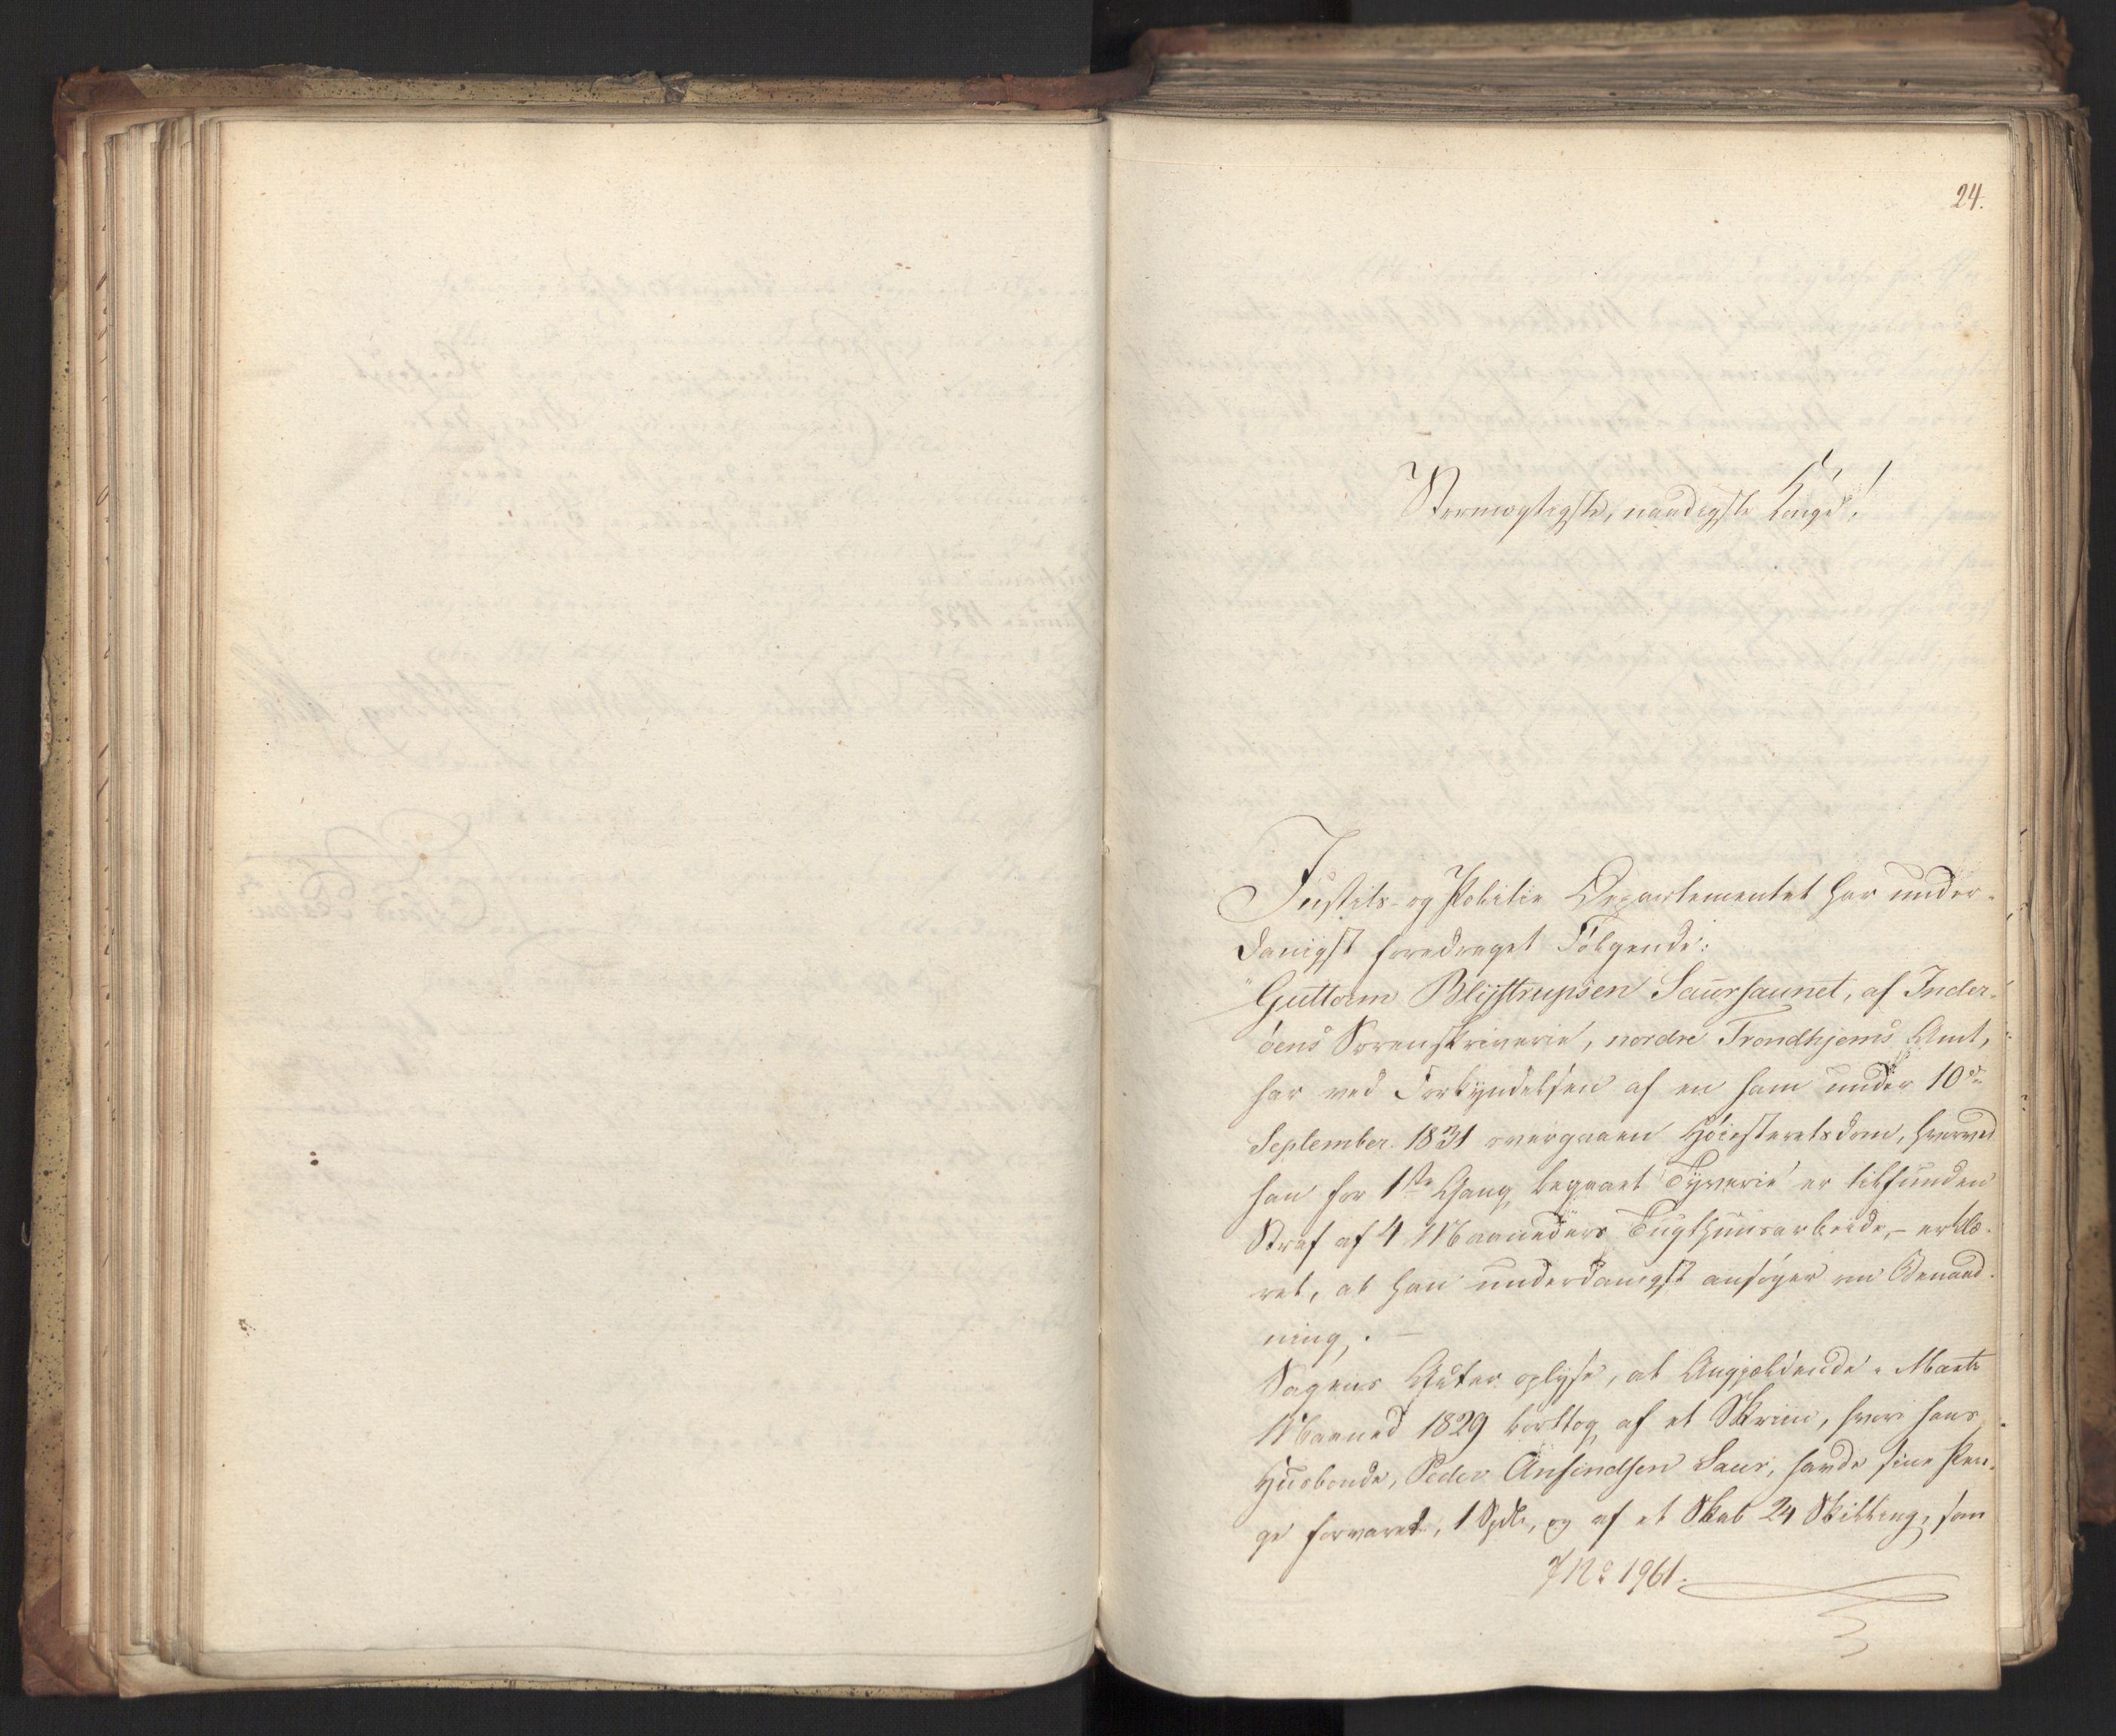 24.
Stormægtigste, naadigste Konge!
Justits- og Politie Departementet har under-
danigst foredraget Følgende:
"Guttorm Blijstrupsen Saursaunet, af Inder-
öens Sorenskriverie, nordre Trondhjems Amt,
har ved Forkyndelsen af en ham under 10de
September 1831 overgaaen Höiesteretsdom, hvorved
han for 1ste Gang begaaet Tyverie er tilfunden
Straf af 4 Maaneders Tugthuusarbeide, – erklæ-
ret, at han underdanigst ansöger om Benaad-
ning. –
Sagens Akter oplyse, at Angjeldende i Marts
Maaned 1829 borttog af et Skriin, hvori hans
Huusbonde, Peder Ansindsen Saur, havde sine Pen-
ge forvaret, 1 Spd, og af et Skab 24 Skilling, som
J No 1961.